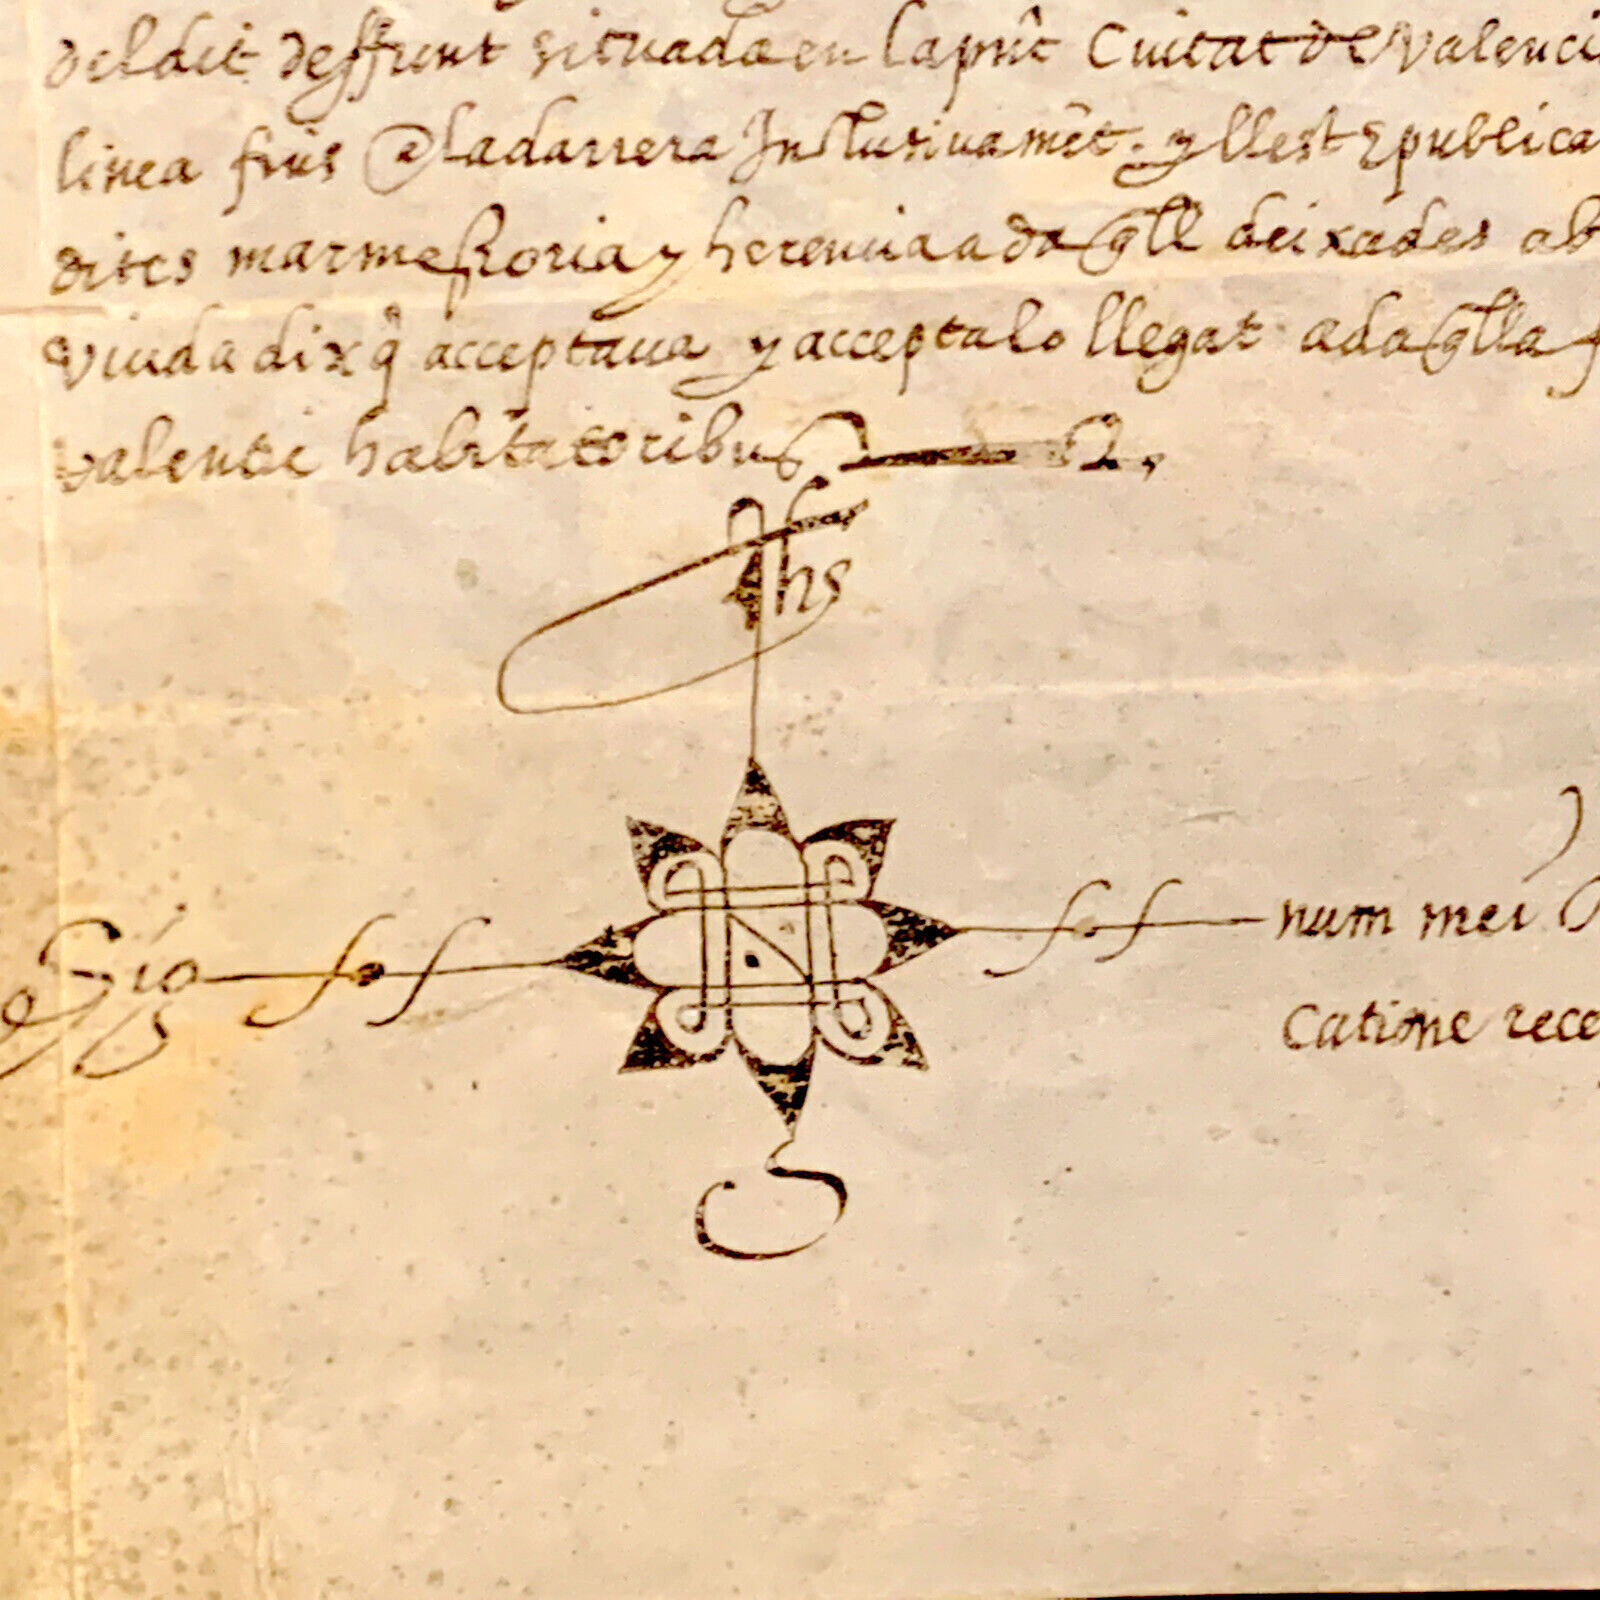 del dit deffunt situada en la pnt Ciutat de Valenci
linea fins @ la darrera Inclusivamēt. y llest e publica
dites marmessoria y herencia a da qll deixades ab
viuda dix q̄ acceptaua y accepta lo llegat ada qlla
valentie habitatoribus
Jhs
Sig
num mei
catione rece